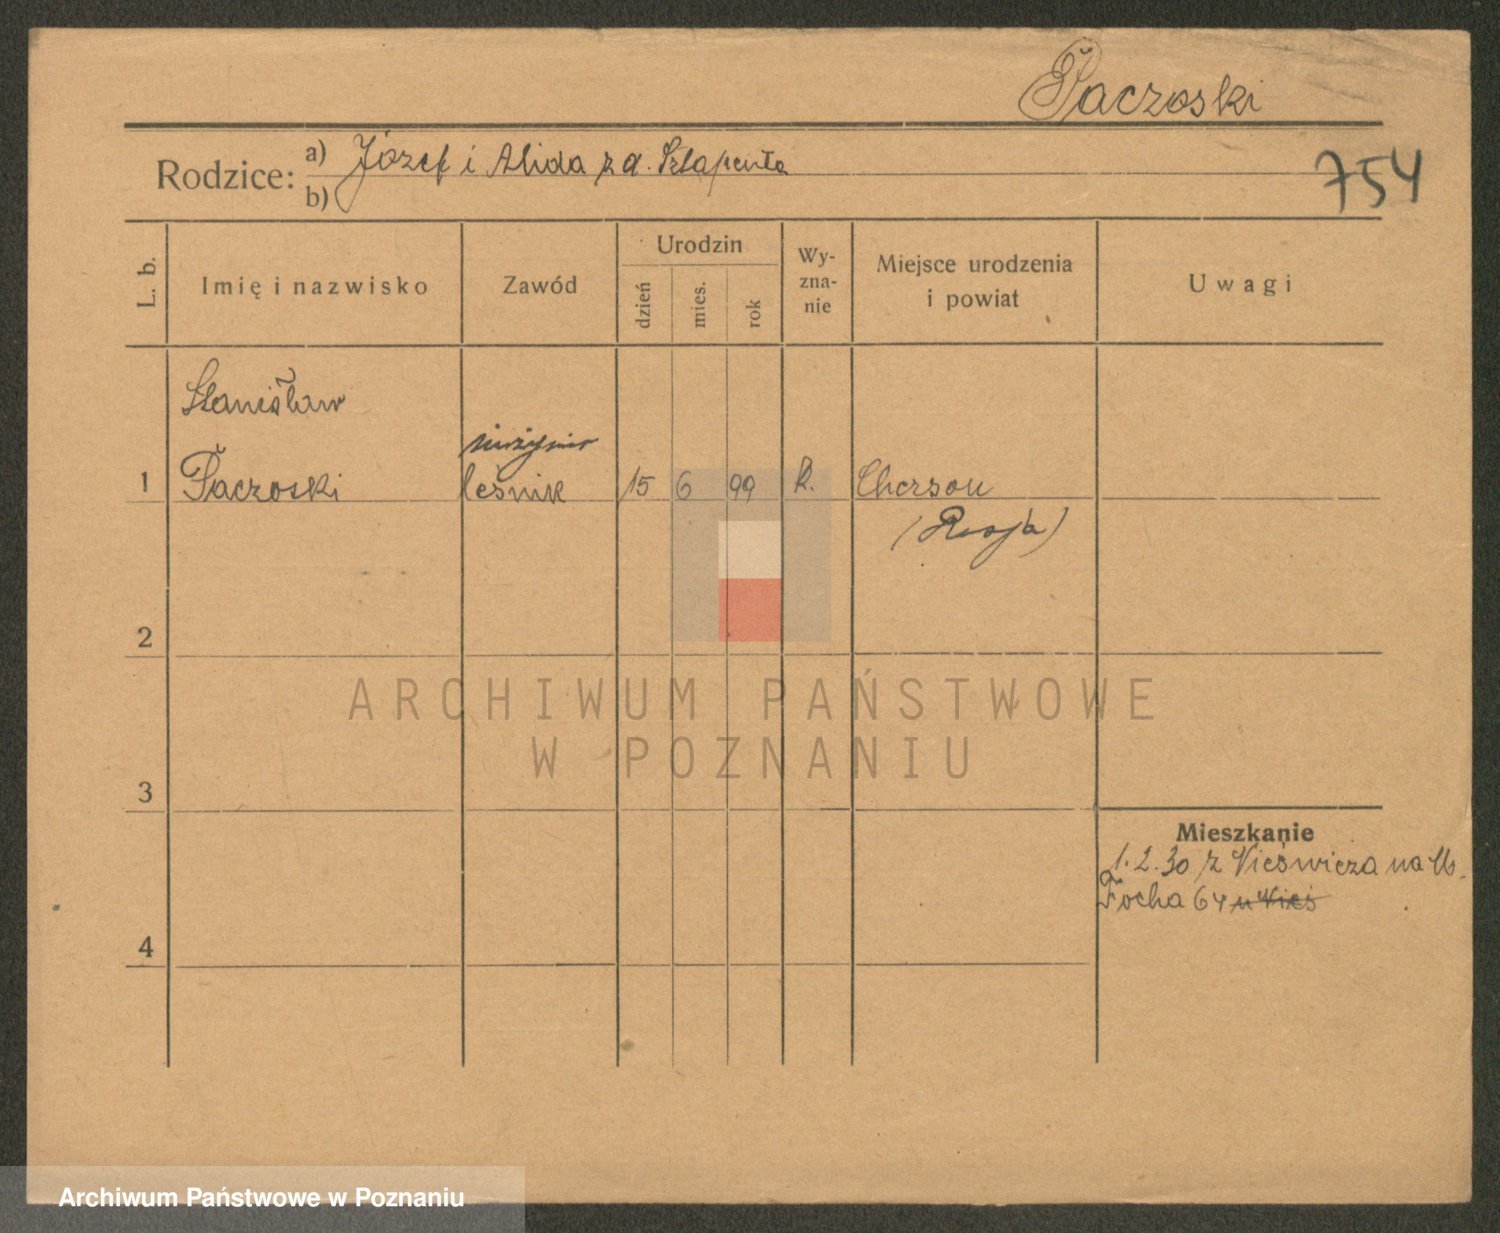 Paczoski
Rodzice: a) Józef i Alida z d. Szlapenta
b)
754
L. b.
Imię i nazwisko
Zawód
Urodzin
dzień
mies.
rok
Wy-
zna-
nie
Miejsce urodzenia
i powiat
Uwagi
Stanisław
inżynier
1 Paczoski leśnik 15 6 99 R. Cherson
(Rosja)
2
ARCHIWUM PAŃSTWOWE
W POZNANIU
3
Mieszkanie
1.2.30 z Nieświcza na Ul.
Focha 64
4
Archiwum Państwowe w Poznaniu